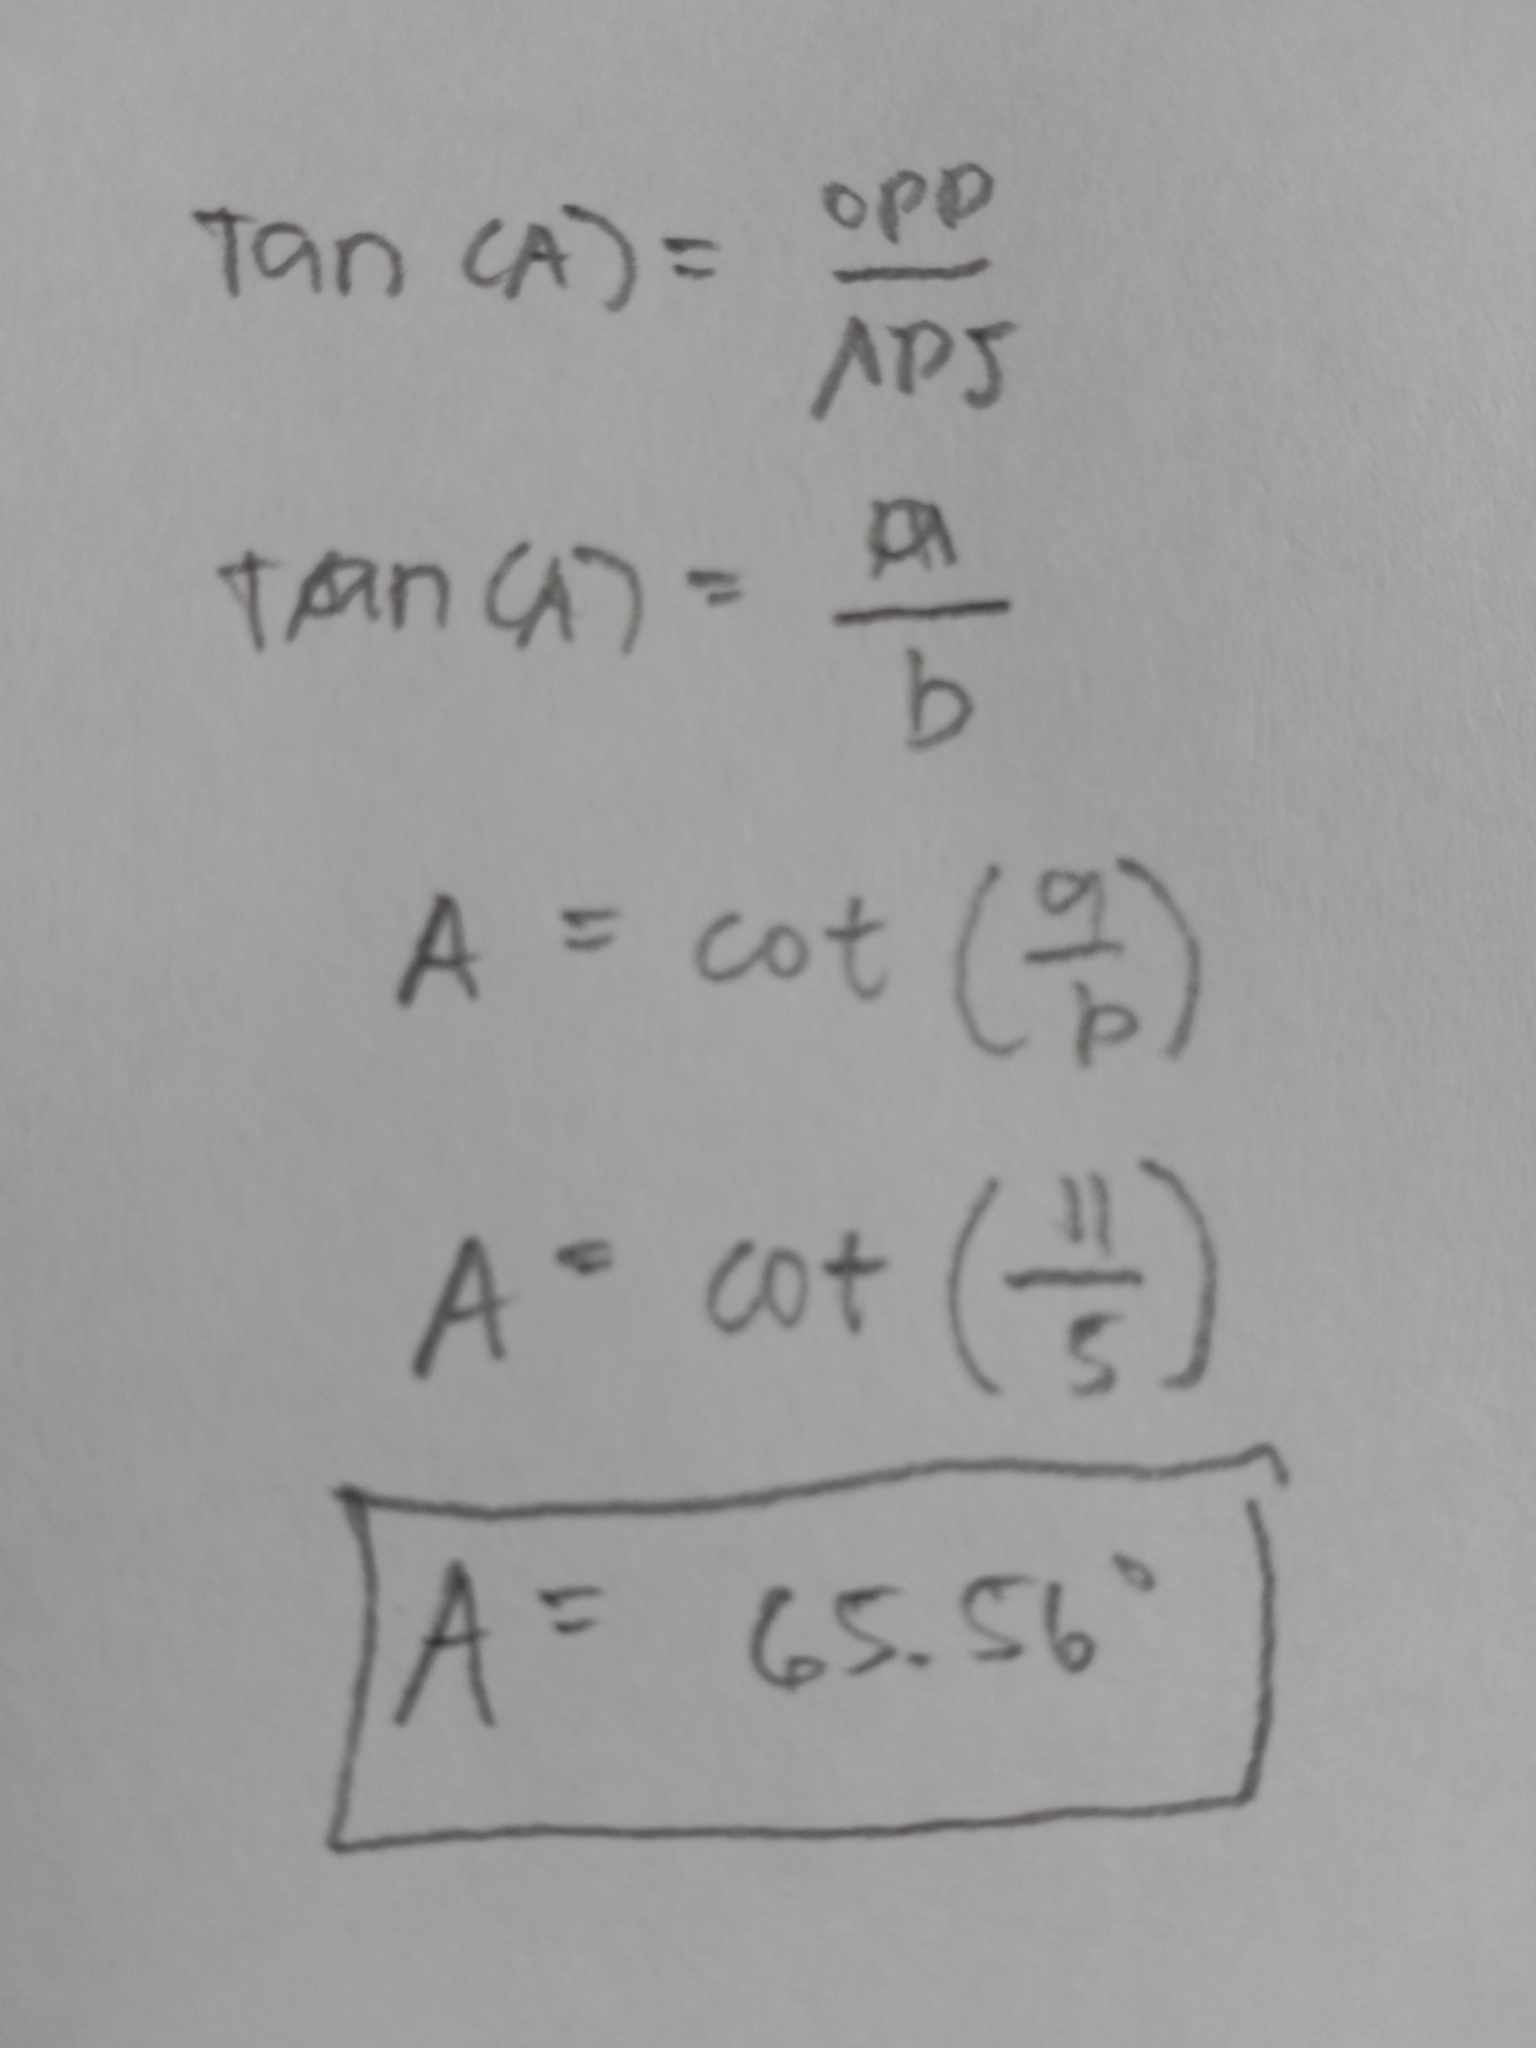 Tan (A) = OPP / ADJ
tan (A) = a / b
A = cot (a / b)
A = cot (11 / 5)
A = 65.56°